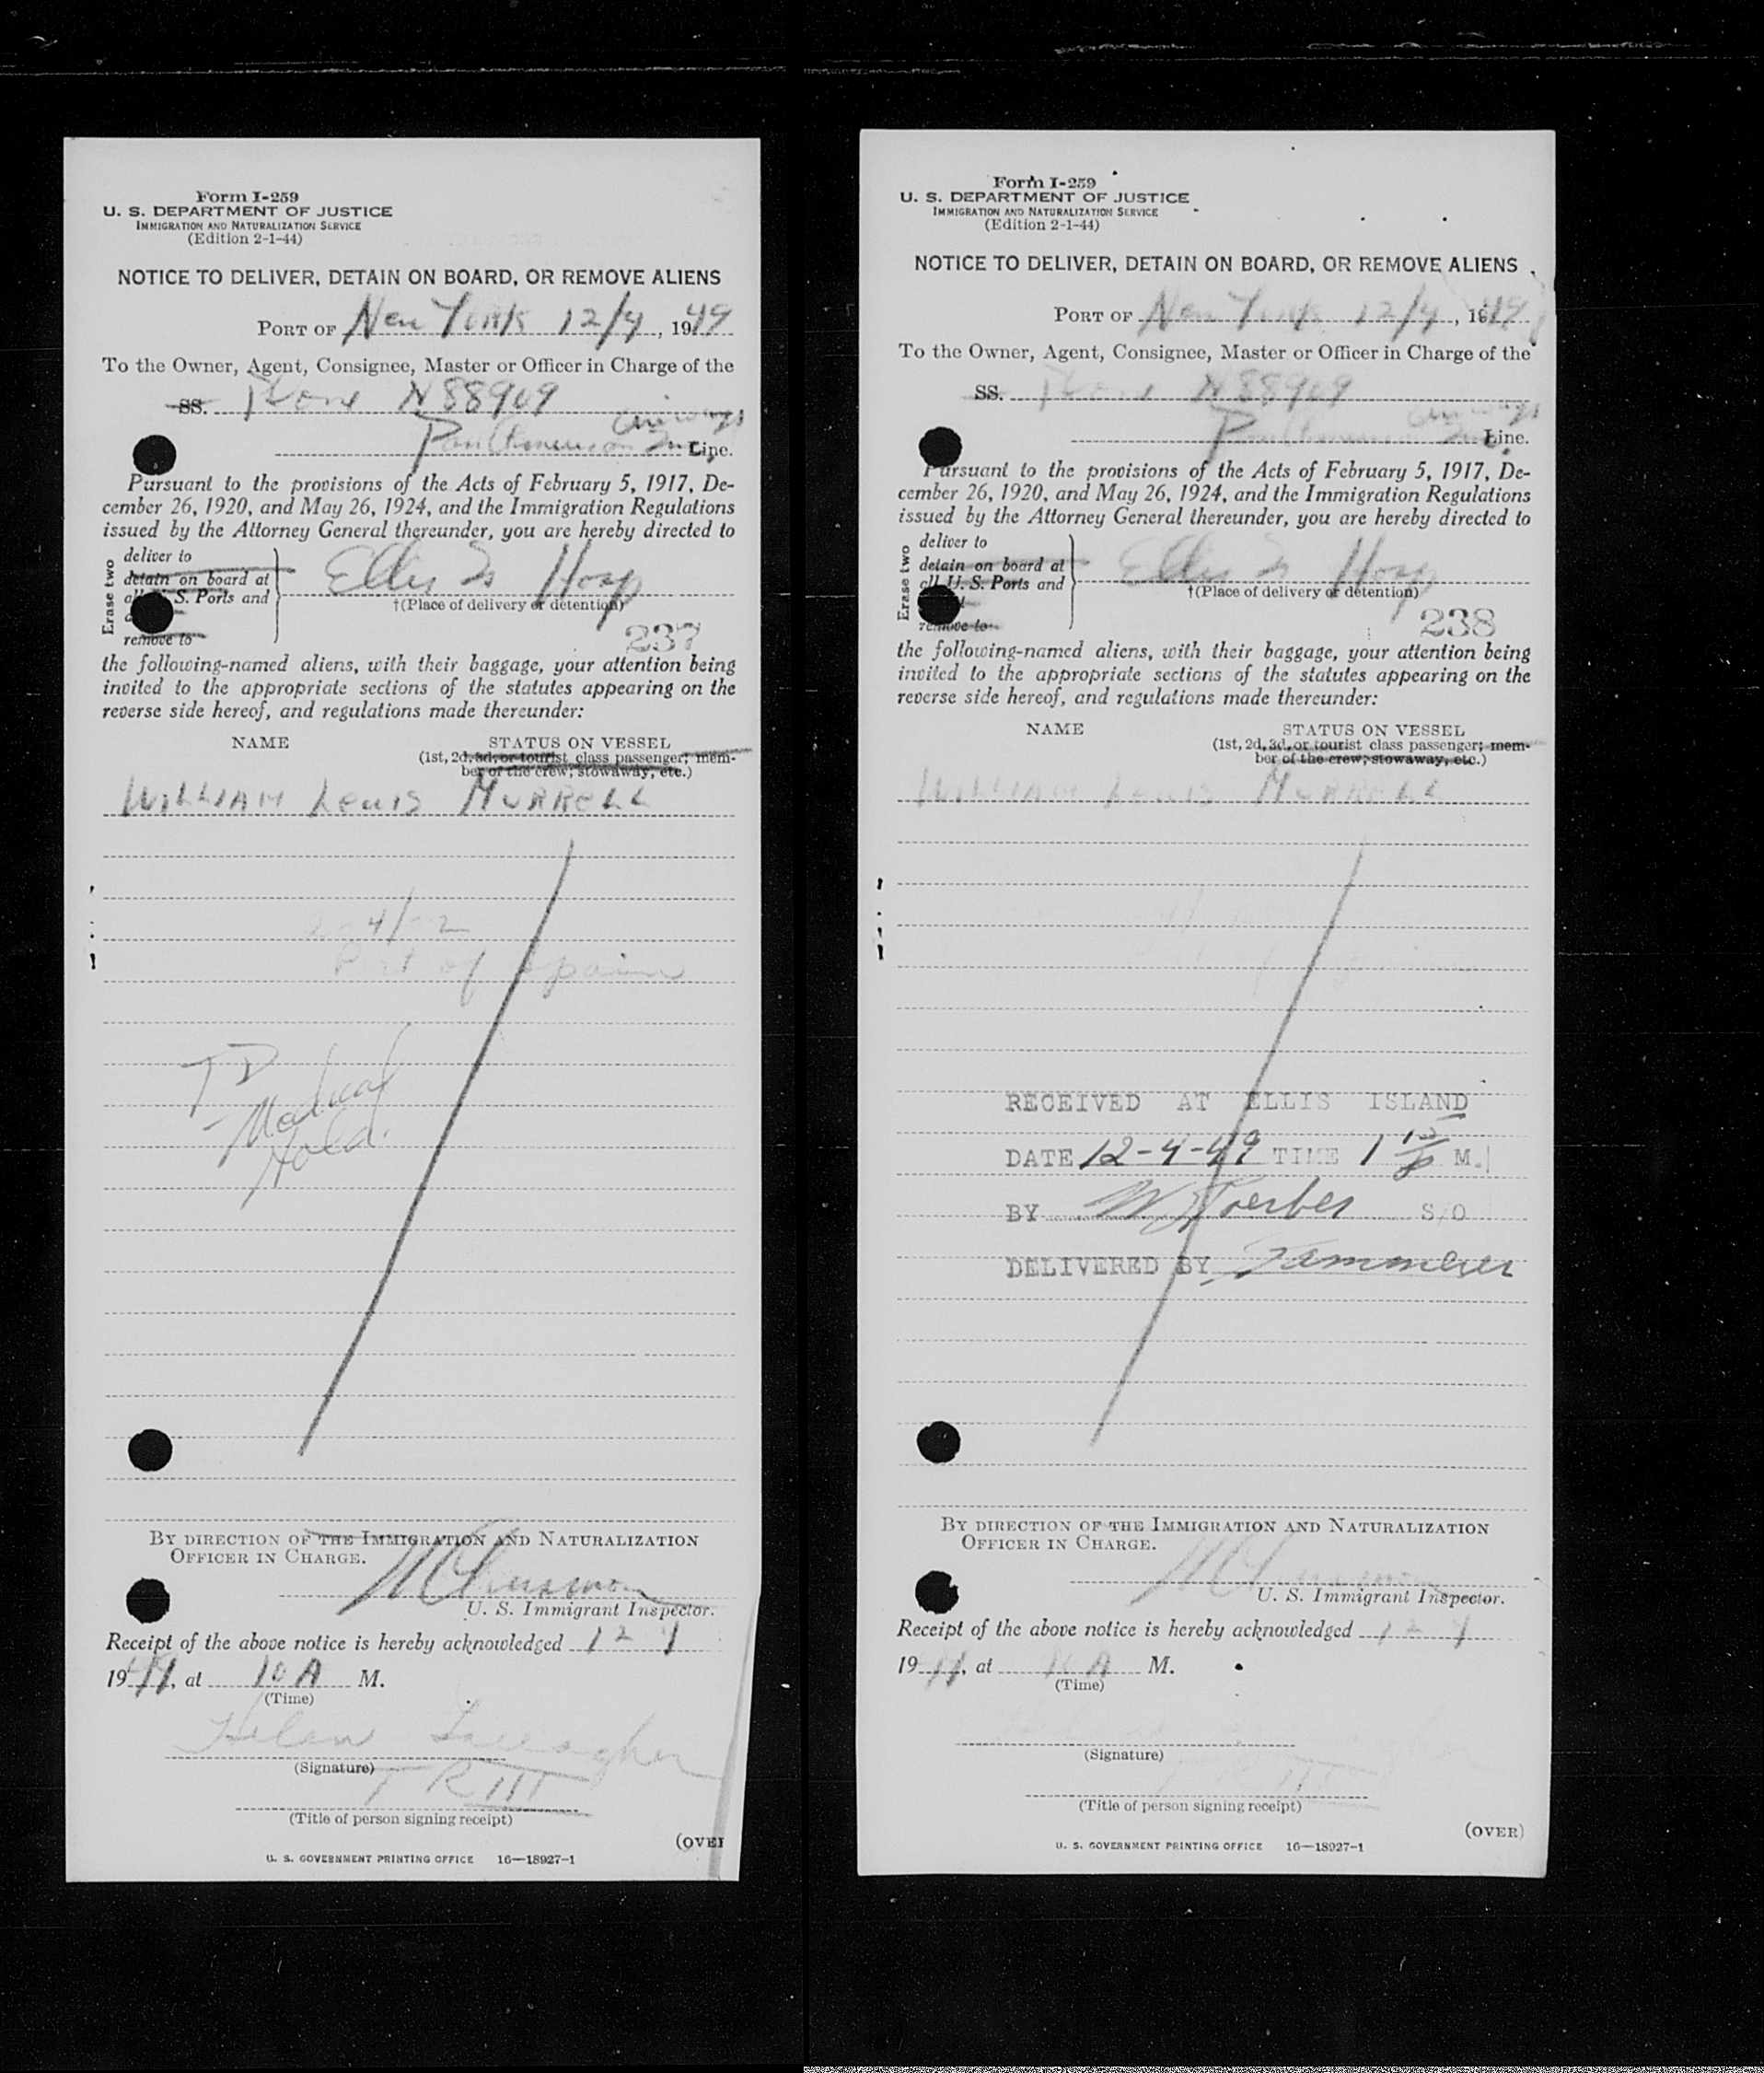 Form I-259
U. S. DEPARTMENT OF JUSTICE
IMMIGRATION AND NATURALIZATION SERVICE
(Edition 2-1-44)
NOTICE TO DELIVER, DETAIN ON BOARD, OR REMOVE ALIENS
PORT OF New York 12/4, 1949
To the Owner, Agent, Consignee, Master or Officer in Charge of the
SS. Plane N88909
Pan American Airways Inc. Line.
Pursuant to the provisions of the Acts of February 5, 1917, De-
cember 26, 1920, and May 26, 1924, and the Immigration Regulations
issued by the Attorney General thereunder, you are hereby directed to
Erase two
deliver to
detain on board at
S. Ports and
remove to
Ellis Is Hosp
†(Place of delivery or detention)
237
the following-named aliens, with their baggage, your attention being
invited to the appropriate sections of the statutes appearing on the
reverse side hereof, and regulations made thereunder:
NAME STATUS ON VESSEL
(1st, 2d, 3d, or tourist class passenger; mem-
ber of the crew; stowaway, etc.)
WILLIAM Lewis MURRELL
Port of Spain
TD
Medical
Hold.
BY DIRECTION OF THE IMMIGRATION AND NATURALIZATION
OFFICER IN CHARGE.
U. S. Immigrant Inspector.
Receipt of the above notice is hereby acknowledged 12 4
1949, at 10 A M.
(Time)
Helen Gallagher
(Signature)
TR III
(Title of person signing receipt)
(OVE
U. S. GOVERNMENT PRINTING OFFICE 16—18927-1
Form I-259
U. S. DEPARTMENT OF JUSTICE
IMMIGRATION AND NATURALIZATION SERVICE
(Edition 2-1-44)
NOTICE TO DELIVER, DETAIN ON BOARD, OR REMOVE ALIENS
PORT OF New York 12/4, 1949
To the Owner, Agent, Consignee, Master or Officer in Charge of the
SS. Plane N88909
Pan American Airways Inc. Line.
Pursuant to the provisions of the Acts of February 5, 1917, De-
cember 26, 1920, and May 26, 1924, and the Immigration Regulations
issued by the Attorney General thereunder, you are hereby directed to
Erase two
deliver to
detain on board at
all U. S. Ports and
remove to
Ellis Is Hosp
†(Place of delivery or detention)
238
the following-named aliens, with their baggage, your attention being
invited to the appropriate sections of the statutes appearing on the
reverse side hereof, and regulations made thereunder:
NAME STATUS ON VESSEL
(1st, 2d, 3d, or tourist class passenger; mem-
ber of the crew; stowaway, etc.)
WILLIAM Lewis MURRELL
RECEIVED AT ELLIS ISLAND
DATE 12-4-49 TIME 1 15 P M.
BY S/O
DELIVERED BY
BY DIRECTION OF THE IMMIGRATION AND NATURALIZATION
OFFICER IN CHARGE.
U. S. Immigrant Inspector.
Receipt of the above notice is hereby acknowledged 12 4
1949, at 10 A M.
(Time)
(Signature)
TR III
(Title of person signing receipt)
(OVER)
U. S. GOVERNMENT PRINTING OFFICE 16—18927-1